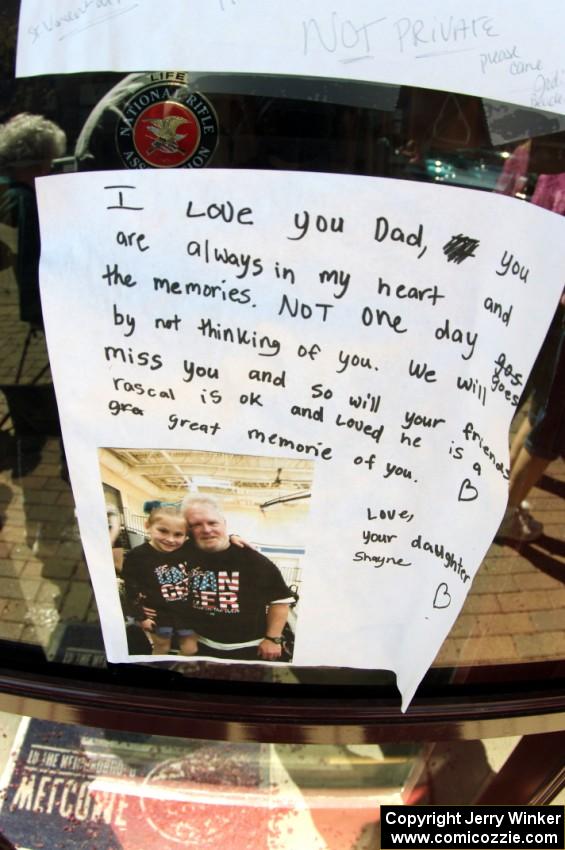 NOT PRIVATE
please
came
LIFE
NATIONAL RIFLE
I Love you Dad, you
are always in my heart and
the memories. NOT one day gos
goes
by not thinking of you. we will
miss you and so will your friends
rascal is ok and loved he is a
gra great memorie of you.
Love,
your daughter
Shayne
TO THE NEIGHBORHOOD
WELCOME
Copyright Jerry Winker
www.comicozzie.com